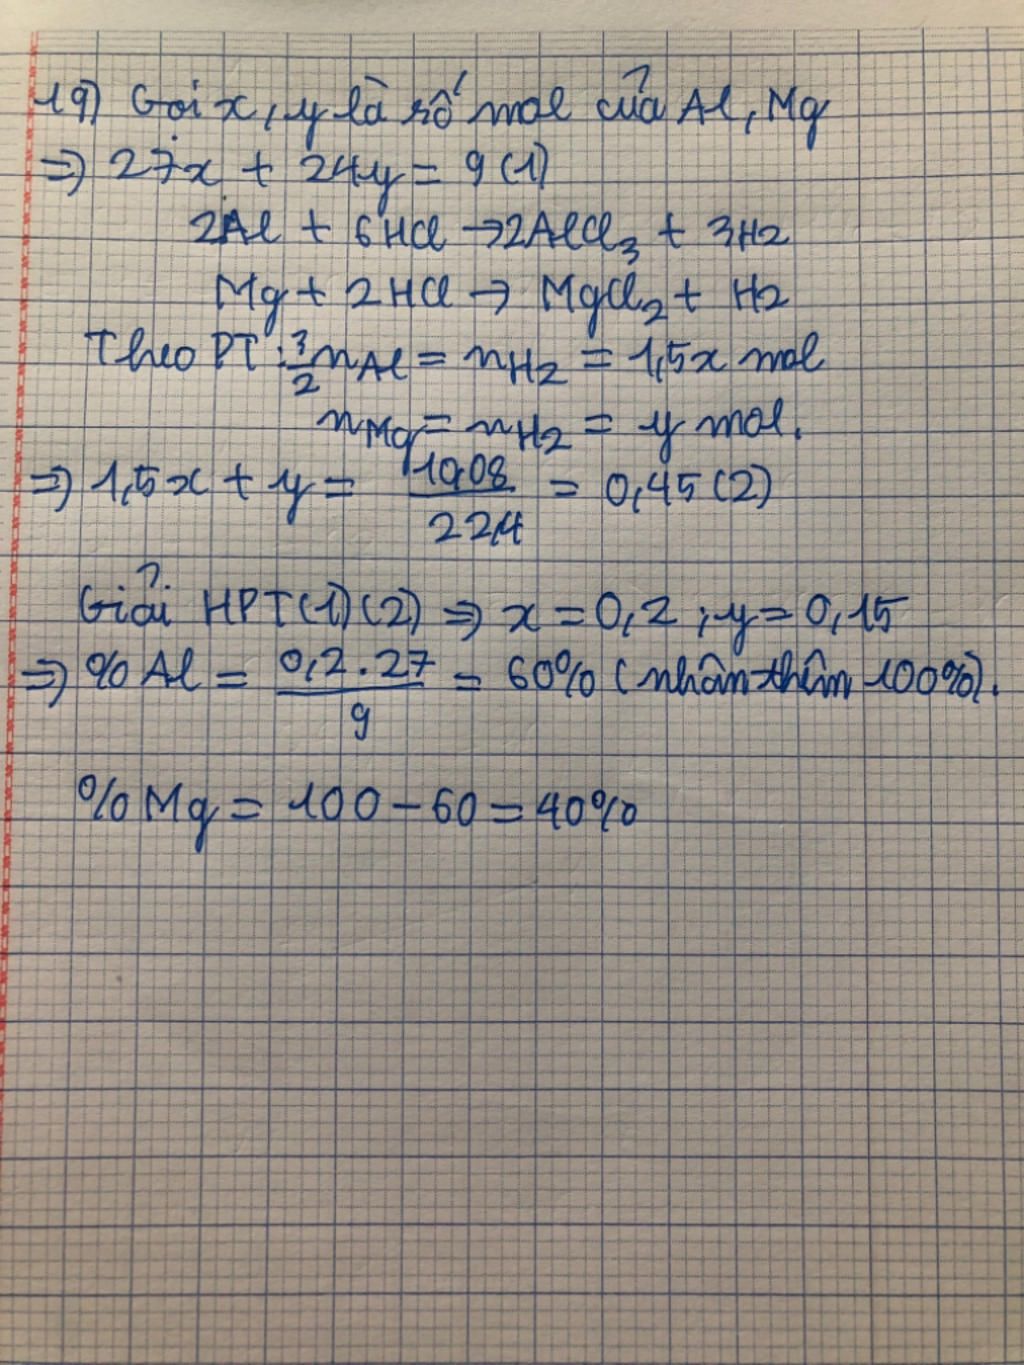 19) Gọi x, y là số mol của Al, Mg
=> 27x + 24y = 9 (1)
2Al + 6HCl → 2AlCl3 + 3H2
Mg + 2HCl → MgCl2 + H2
Theo PT: 3/2 nAl = nH2 = 1,5x mol
nMg = nH2 = y mol.
=> 1,5x + y = 10,08/22,4 = 0,45 (2)
Giải HPT (1) (2) => x = 0,2 ; y = 0,15
=> % Al = 0,2 . 27/9 = 60% (nhân thêm 100%).
% Mg = 100 - 60 = 40%